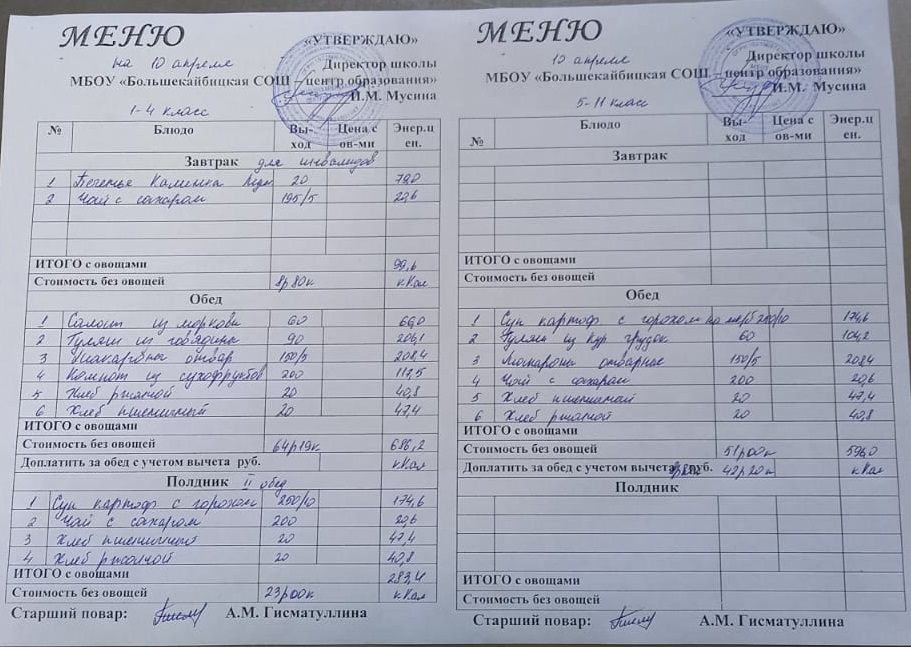 МЕНЮ
«УТВЕРЖДАЮ»
на 10 апреля
Директор школы
МБОУ «Большекайбицкая СОШ – центр образования»
И.М. Мусина
1-4 класс
№ Блюдо Вы-ход Цена с ов-ми Энер.ц ен.
Завтрак для инвалидов
1 Печенье Калинка 20 79,0
2 Чай с сахаром 195/5 20,6
ИТОГО с овощами 99,6
Стоимость без овощей 8р80к кКал
Обед
1 Салат из моркови 60 66,0
2 Гуляш из говядины 90 206,1
3 Макароны отвар 150/5 208,4
4 Компот из сухофруктов 200 117,5
5 Хлеб ржаной 20 40,8
6 Хлеб пшеничный 20 47,4
ИТОГО с овощами
Стоимость без овощей 64р19к 686,2
Доплатить за обед с учетом вычета руб. кКал
Полдник II обед
1 Суп картоф с горохом 250/10 174,6
2 Чай с сахаром 200 20,6
3 Хлеб пшеничный 20 47,4
4 Хлеб ржаной 20 40,8
ИТОГО с овощами 283,4
Стоимость без овощей 23р00к кКал
Старший повар: А.М. Гисматуллина
МЕНЮ
«УТВЕРЖДАЮ»
10 апреля
Директор школы
МБОУ «Большекайбицкая СОШ – центр образования»
И.М. Мусина
5-11 класс
№ Блюдо Вы-ход Цена с ов-ми Энер.ц ен.
Завтрак
ИТОГО с овощами
Стоимость без овощей
Обед
1 Суп картоф с горохом на 174,6
2 Гуляш из кур грудок 60 104,2
3 Макароны отварные 150/5 208,4
4 Чай с сахаром 200 20,6
5 Хлеб пшеничный 20 47,4
6 Хлеб ржаной 20 40,8
ИТОГО с овощами
Стоимость без овощей 51р00к 596,0
Доплатить за обед с учетом вычета руб. 42р20к кКал
Полдник
ИТОГО с овощами
Стоимость без овощей
Старший повар: А.М. Гисматуллина